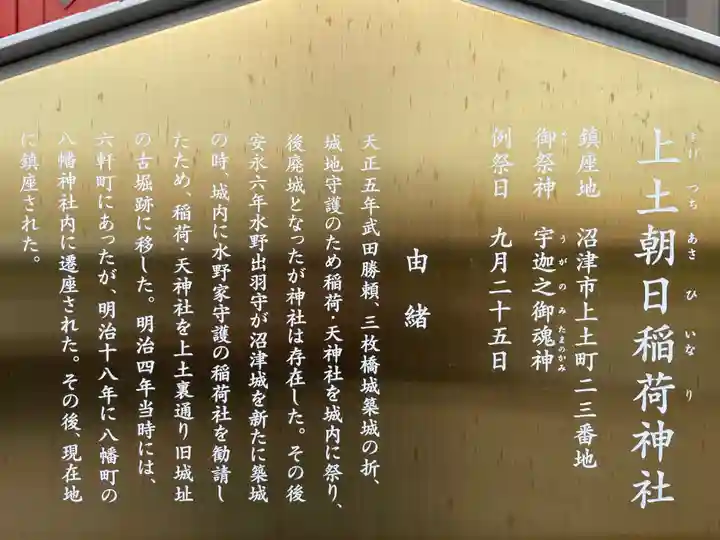 上土朝日稲荷神社
あげ つち あさ ひ いな り
鎮座地 沼津市上土町二三番地
御祭神 宇迦之御魂神
うがのみたまのかみ
例祭日 九月二十五日
由緒
天正五年武田勝頼、三枚橋城築城の折、
城地守護のため稲荷・天神社を城内に祭り、
後廃城となったが神社は存在した。その後
安永六年水野出羽守が沼津城を新たに築城
の時、城内に水野家守護の稲荷社を勧請し
たため、稲荷・天神社を上土裏通り旧城址
の古堀跡に移した。明治四年当時には、
六軒町にあったが、明治十八年に八幡町の
八幡神社内に遷座された。その後、現在地
に鎮座された。